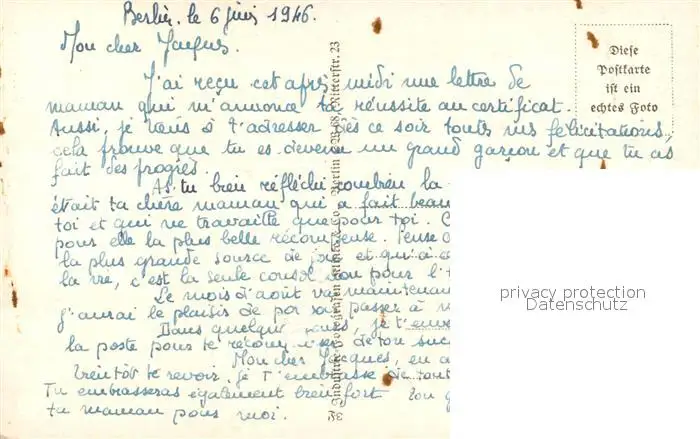 Berlin. le 6 juin 1946.
Mon cher Jacques.
J'ai reçu cet après midi une lettre de
maman qui m'annonce ta réussite au certificat.
Aussi, je tiens à t'adresser dès ce soir toutes mes félicitations,
cela prouve que tu es devenu un grand garçon et que tu as
fait des progrès.
As tu bien réfléchi combien la
était ta chère maman qui a fait beau
toi et qui ne travaille que pour toi. C
pour elle la plus belle récompense. Pense
la plus grande source de joie et qu'à
la vie, c'est la seule consolation pour l'
Le mois d'août va maintenan
J'aurai le plaisir de passer à
Dans quelques jours, je t'env
la poste pour te récompenser de ton suc
Mon cher Jacques, en a
bientôt te revoir, je t'embrasse de tout
Tu embrasseras également bien fort
ta maman pour moi.
Diese
Postkarte
ist ein
echtes Foto
Industrie-Fotografen Klinke & Co. Berlin W 8, Ritterstr. 23
privacy protection
Datenschutz